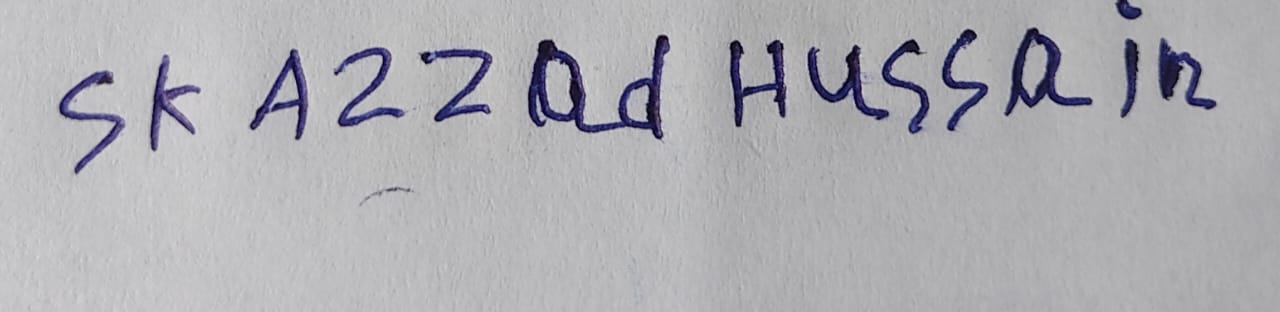 SK AZZad Hussain